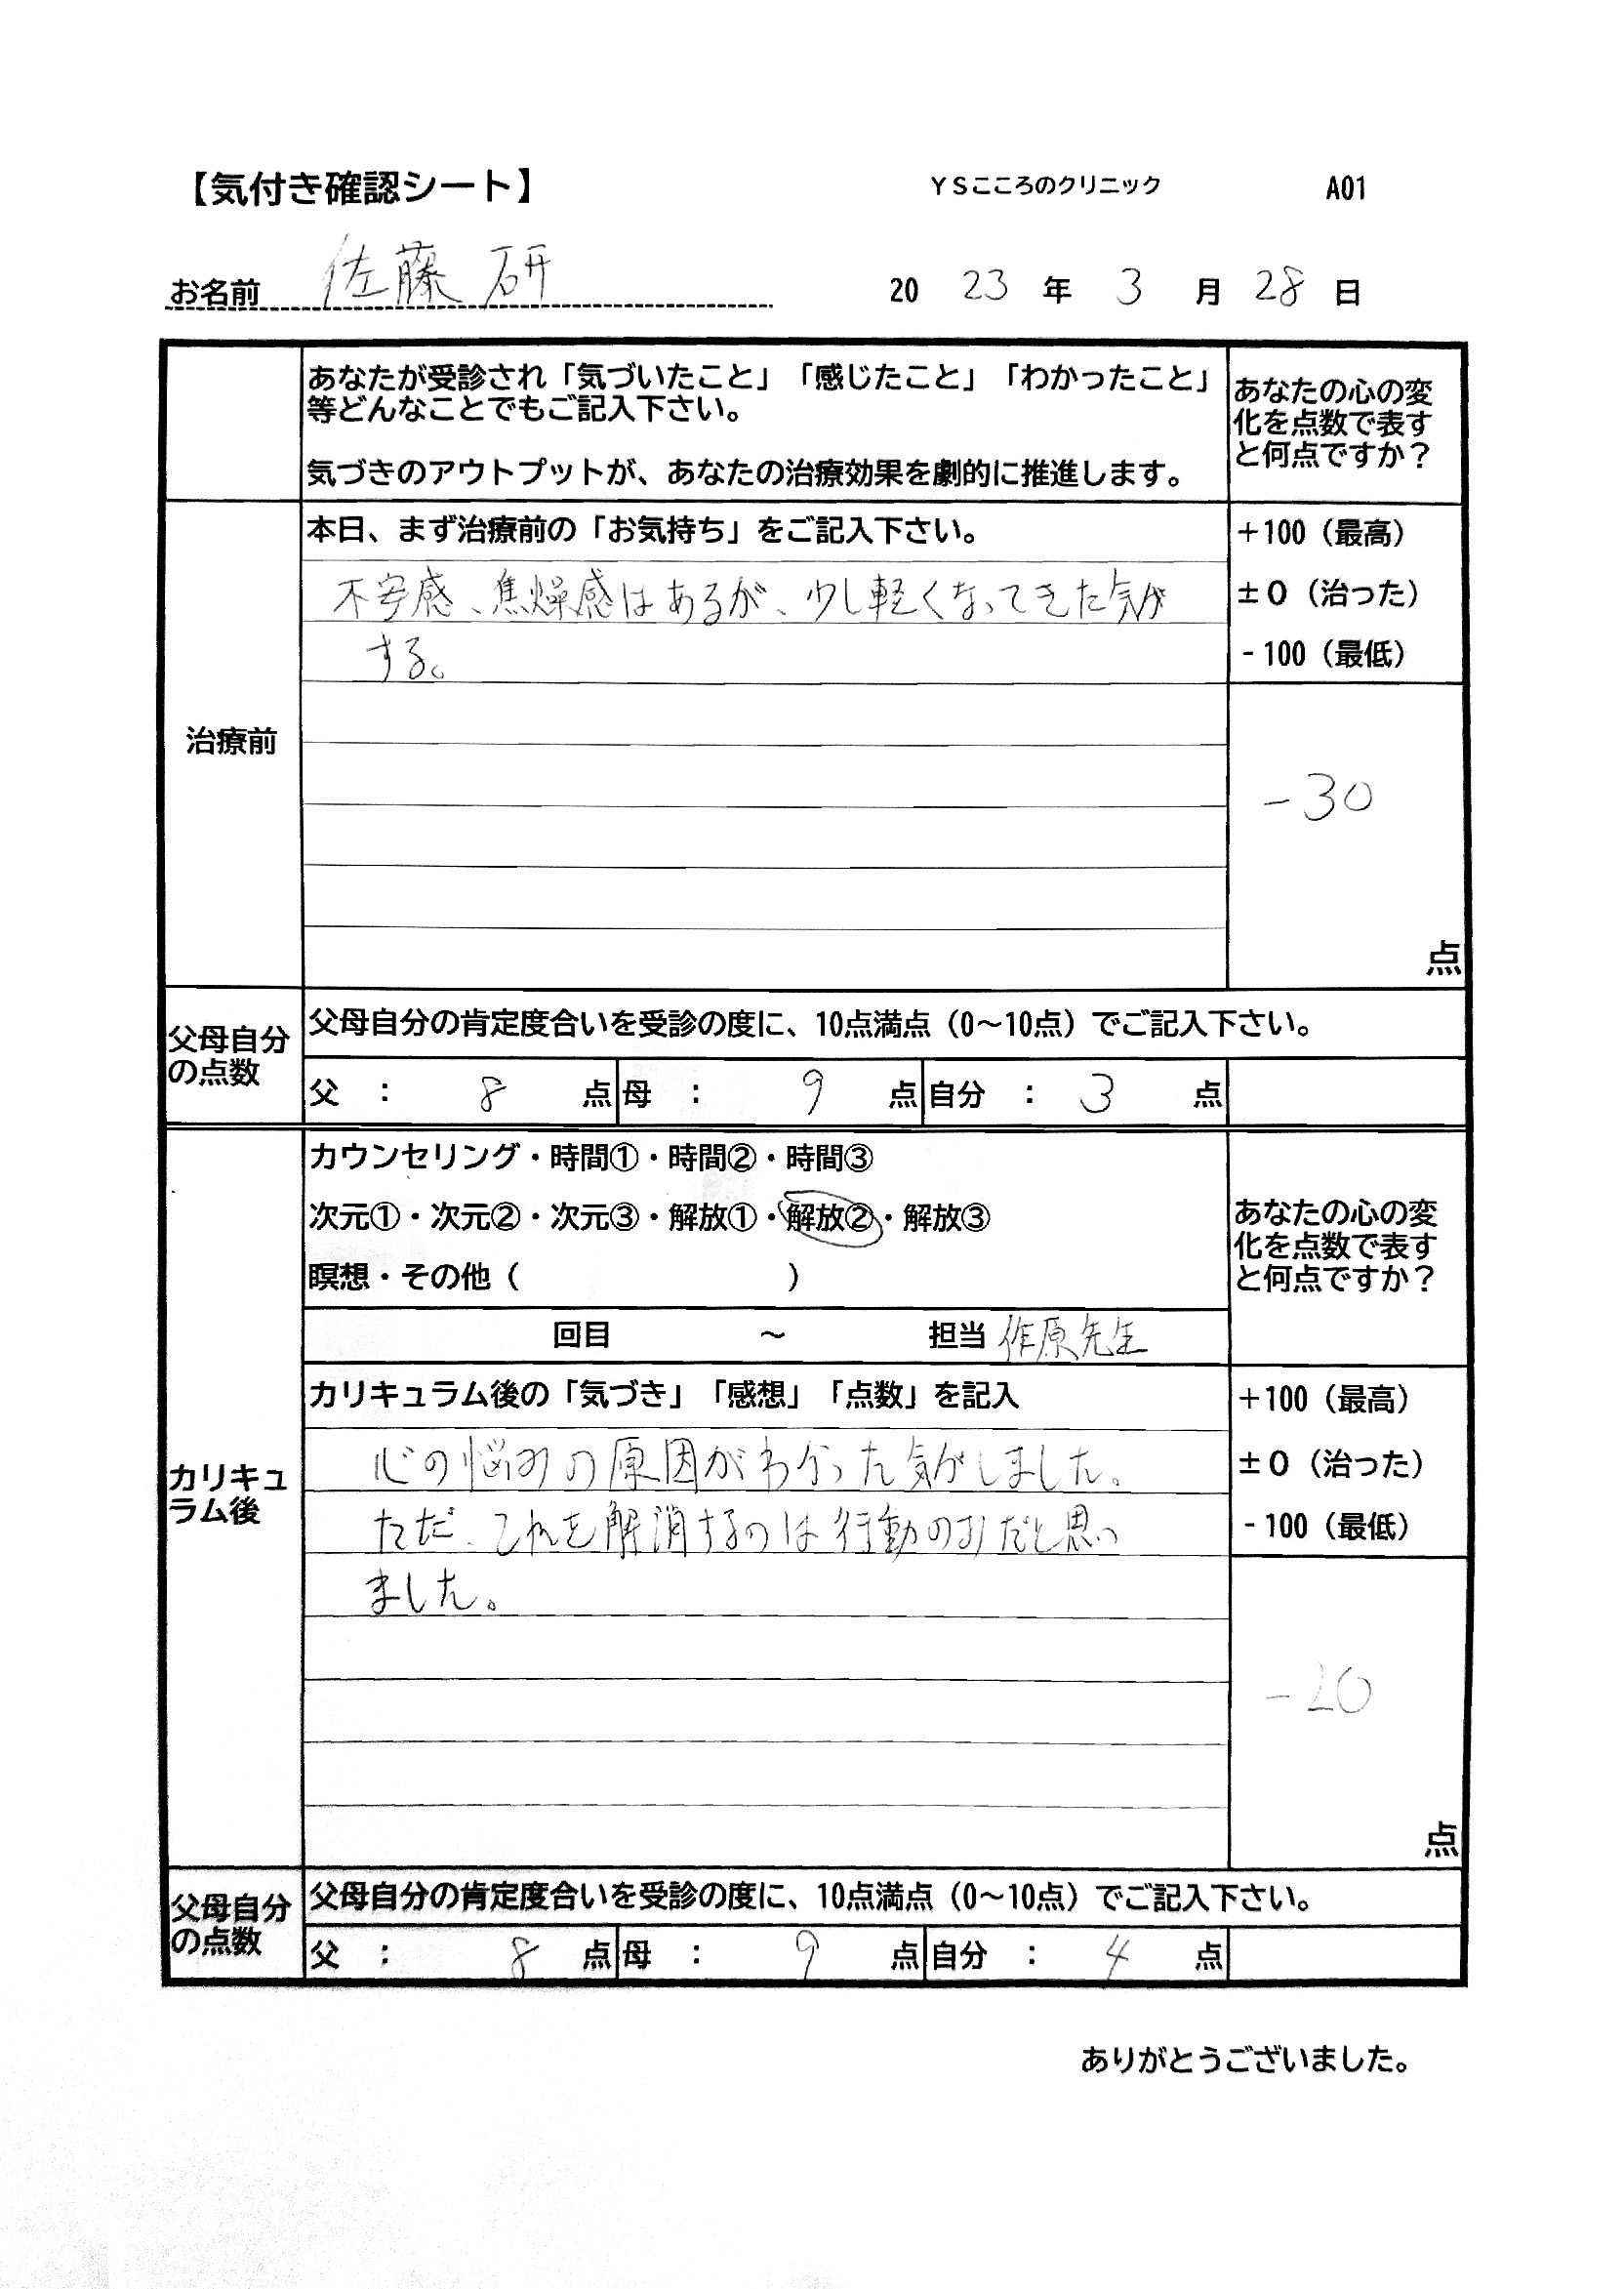 【気付き確認シート】 YSこころのクリニック A01
お名前 佐藤 研 20 23 年 3 月 28 日
あなたが受診され「気づいたこと」「感じたこと」「わかったこと」
等どんなことでもご記入下さい。
気づきのアウトプットが、あなたの治療効果を劇的に推進します。
あなたの心の変
化を点数で表す
と何点ですか?
治療前
本日、まず治療前の「お気持ち」をご記入下さい。
不安感、焦燥感はあるが、少し軽くなってきた気が
する。
+100(最高)
±0(治った)
-100(最低)
-30
点
父母自分
の点数
父母自分の肯定度合いを受診の度に、10点満点(0~10点)でご記入下さい。
父 : 8 点 母 : 9 点 自分 : 3 点
カリキュ
ラム後
カウンセリング・時間①・時間②・時間③
次元①・次元②・次元③・解放①・解放②・解放③
瞑想・その他( )
回目 ~ 担当 作原先生
あなたの心の変
化を点数で表す
と何点ですか?
カリキュラム後の「気づき」「感想」「点数」を記入
心の悩みの原因がわかった気がしました。
ただ、これを解消するのは行動のみだと思い
ました。
+100(最高)
±0(治った)
-100(最低)
-20
点
父母自分
の点数
父母自分の肯定度合いを受診の度に、10点満点(0~10点)でご記入下さい。
父 : 8 点 母 : 9 点 自分 : 4 点
ありがとうございました。